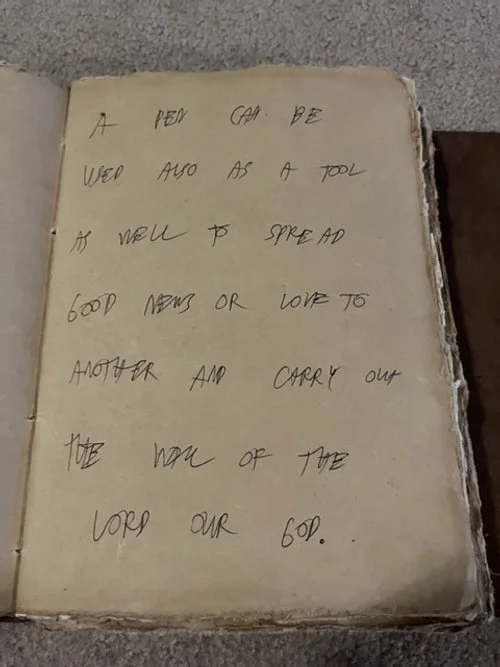 A PEN CAN BE
USED ALSO AS A TOOL
AS WELL TO SPREAD
GOOD NEWS OR LOVE TO
ANOTHER AND CARRY OUT
THE WILL OF THE
LORD OUR GOD.